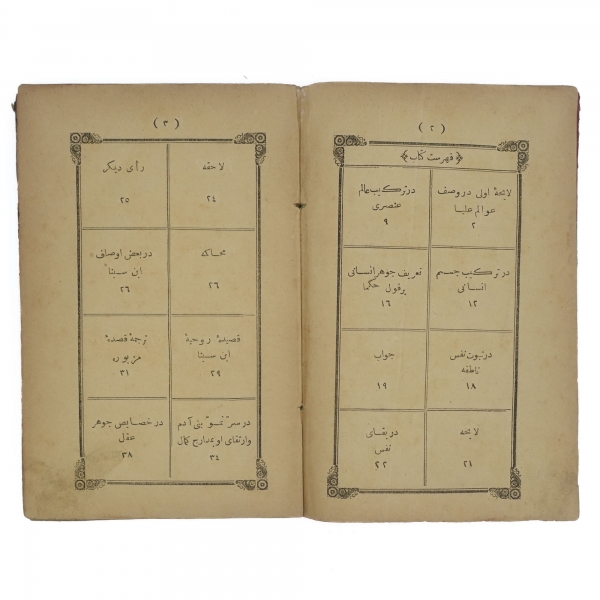 ( ٢ )
﴿ فهرست كتاب ﴾
لايحهٔ اولى در وصف
عوالم عليا
٢
در تركيب عالم
عنصرى
٩
در تركيب جسم
انسانى
١٢
تعريف جوهر انسانى
بر قول حكما
١٦
در ثبوت نفس
ناطقه
١٨
جواب
١٩
لايحه
٢١
در بقاى
نفس
٢٢
( ٣ )
لاحقه
٢٤
رأى ديگر
٢٥
محاكمه
٢٦
در بعض اوصاف
ابن سينا
٢٦
قصيدهٔ روحيهٔ
ابن سينا
٢٩
ترجمهٔ قصيدهٔ
مزبوره
٣١
در سر نمو بنى آدم
وارتقاى او بمدارج كمال
٣٤
در خصايص جوهر
عقل
٣٨